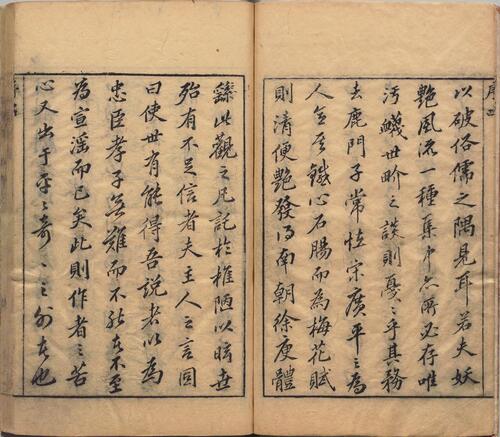 序四
以破俗儒之隅見耳若夫妖
艷風流一種集中亦所必存唯
汚衊世界之談則戛〻乎其務
去鹿門子常怪宋廣平之為
人意其鐵心石腸而為梅花賦
則清便艷發得南朝徐庾體
繇此觀之凡託於椎陋以眩世
殆有不足信者夫主人之言固
曰使世有能得吾説者以為
忠臣孝子無難而不能者不至
為宣滛而已矣此則作者之苦
心又出于平〻奇〻之外者也